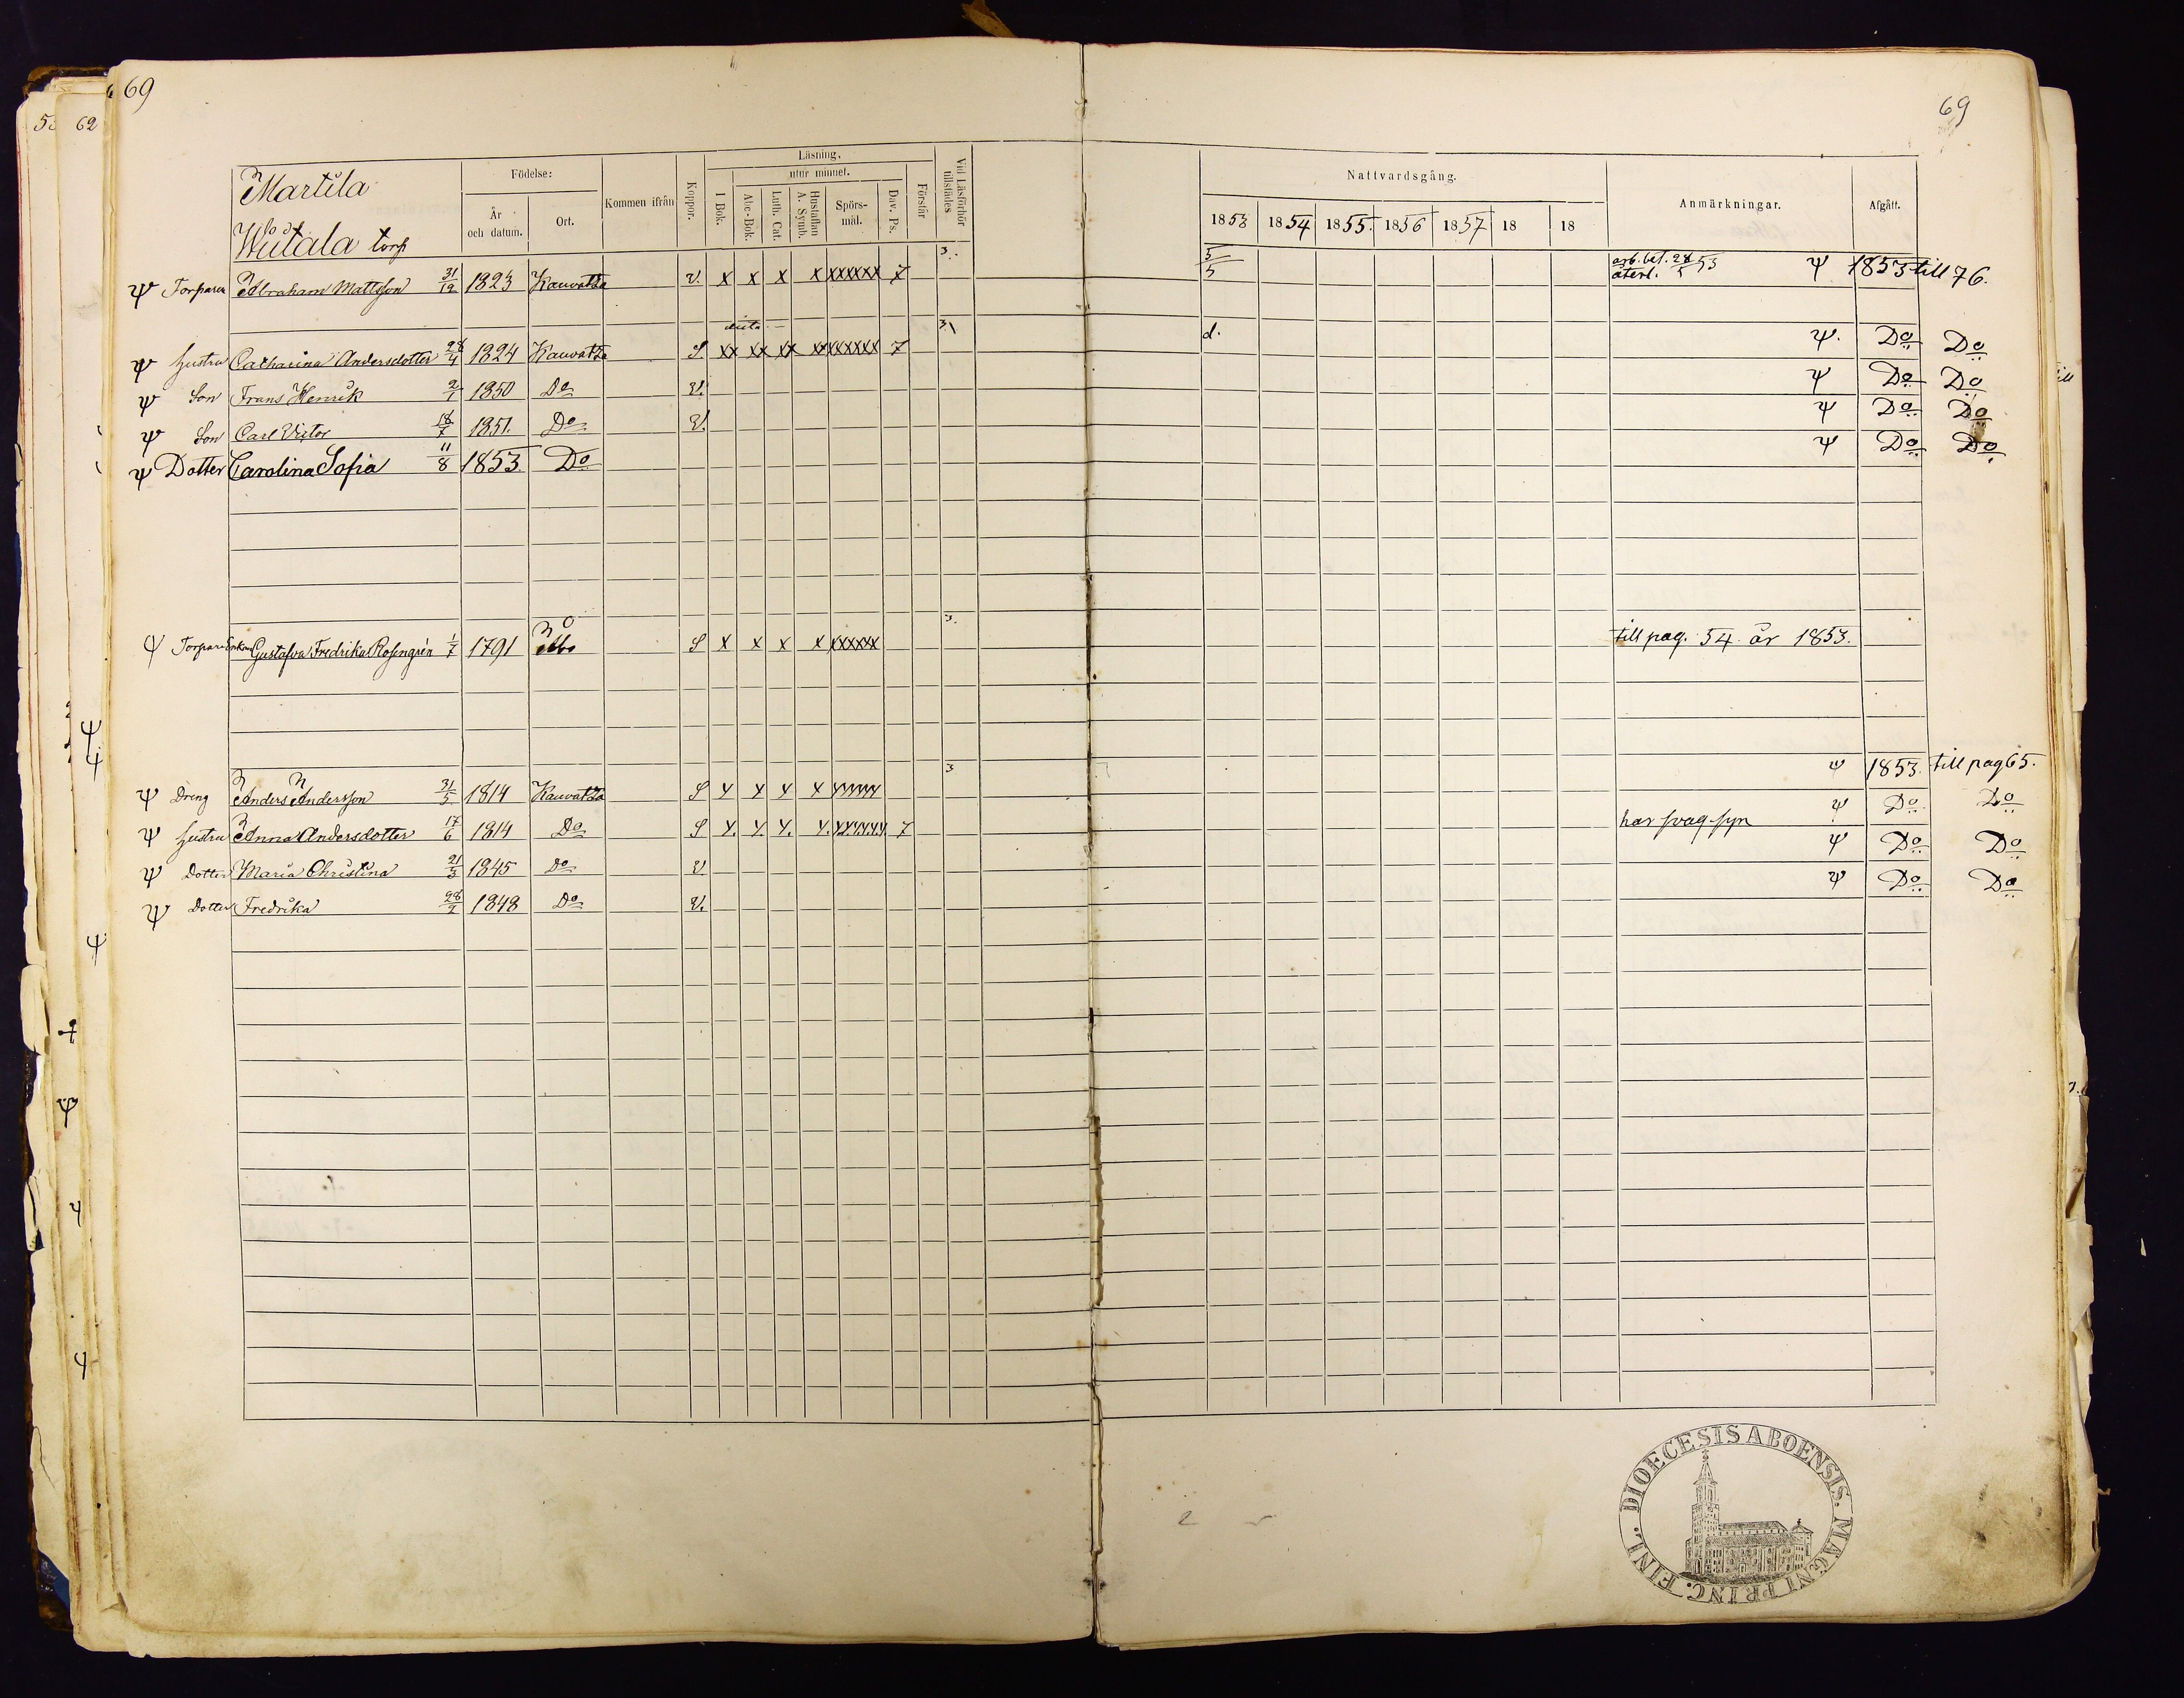 69
69
62
Martila
Wiitala torp
Födelse:
År och datum.
Ort.
Kommen ifrån
Koppor.
Läsning.
I Bok.
utur minnet.
Abc-Bok.
Luth. Cat.
Hustaflan A. Symb.
Spörsmål.
Dav. Ps.
Förstår
Vid Läsförhör tillstädes
Nattvardsgång.
1853 1854 1855. 1856 1857 18 18
Anmärkningar.
Afgått.
Ψ Torparen Abraham Mattsson 31/12 1823 Kauvatza v. x x x x xxxxxx 7 3 5/5 arb. bet. 28/5 53 återl. Ψ 1853 till 76.
Ψ hustru Catharina Andersdotter 28/4 1824 Kauvatza S xx xx xx xx xxxxxx 7 3 d. Ψ. Do Do
Ψ Son Frans Henrik 2/1 1850 Do V. Ψ Do Do
Ψ Son Carl Victor 18/7 1851. Do V. Ψ Do Do
Ψ Dotter Carolina Sofia 11/8 1853. Do Ψ Do Do
Ψ Torpare Enkan Gustafva Fredrika Rosengrén 1/7 1791 Åbo S x x x x xxxxx 3. till pag. 54 år 1853.
Ψ Dreng Anders Andersson 31/5 1814 Kauvatza S x x x x xxxxx 3 Ψ 1853. till pag 65.
Ψ hustru Anna Andersdotter 17/6 1814 Do S x. x. x. x. xxxxxx 7 har svag syn Ψ Do Do
Ψ Dotter Maria Christina 21/3 1845 Do V Ψ Do Do
Ψ Dotter Fredrika 28/2 1848 Do V. Ψ Do Do
DIOECESIS ABOENSIS. MAGNI PRINC. FINL.